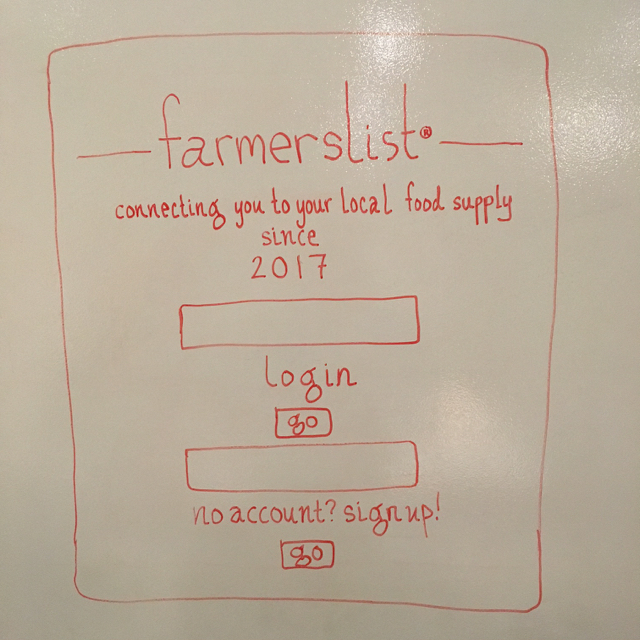 farmerslist®
connecting you to your local food supply
since
2017
login
go
no account? sign up!
go